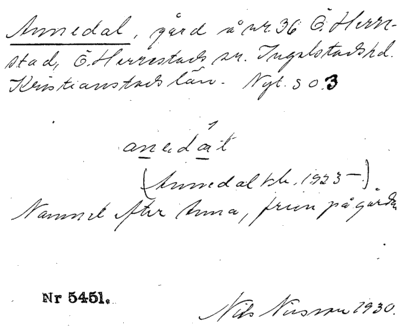 Annedal, gård å nr 36 Ö. Herre-
stad, Ö. Herrestads sn. Ingelstads hd.
Kristianstads län. Nyt. s o. 3
anedát
(Annedal kbk. 1923-)
Namnet efter Anna, frun på gården
Nr 5451.
Nils 1930.